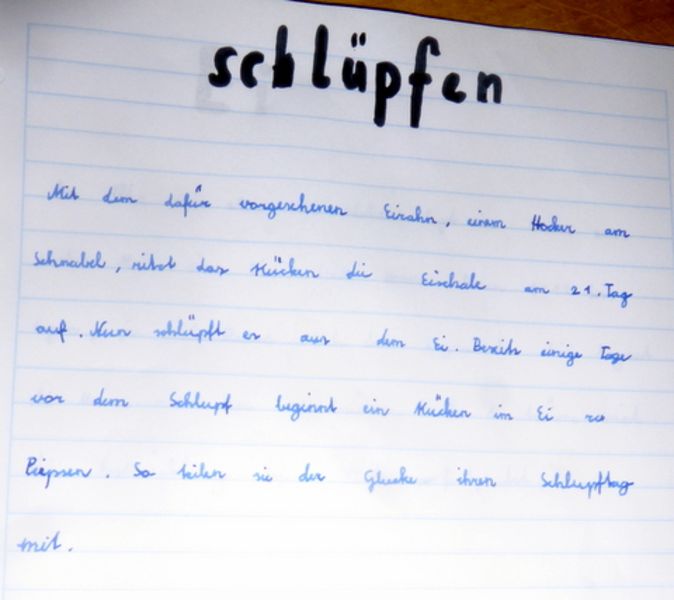 schlüpfen
Mit dem dafür vorgesehenen Eizahn, einem Höcker am
Schnabel, ritzt das Kücken die Eischale am 21. Tag
auf. Nun schlüpft es aus dem Ei. Bereits einige Tage
vor dem Schlupf beginnt ein Kücken im Ei zu
Piepsen. So teilen sie der Glucke ihren Schlupftag
mit.